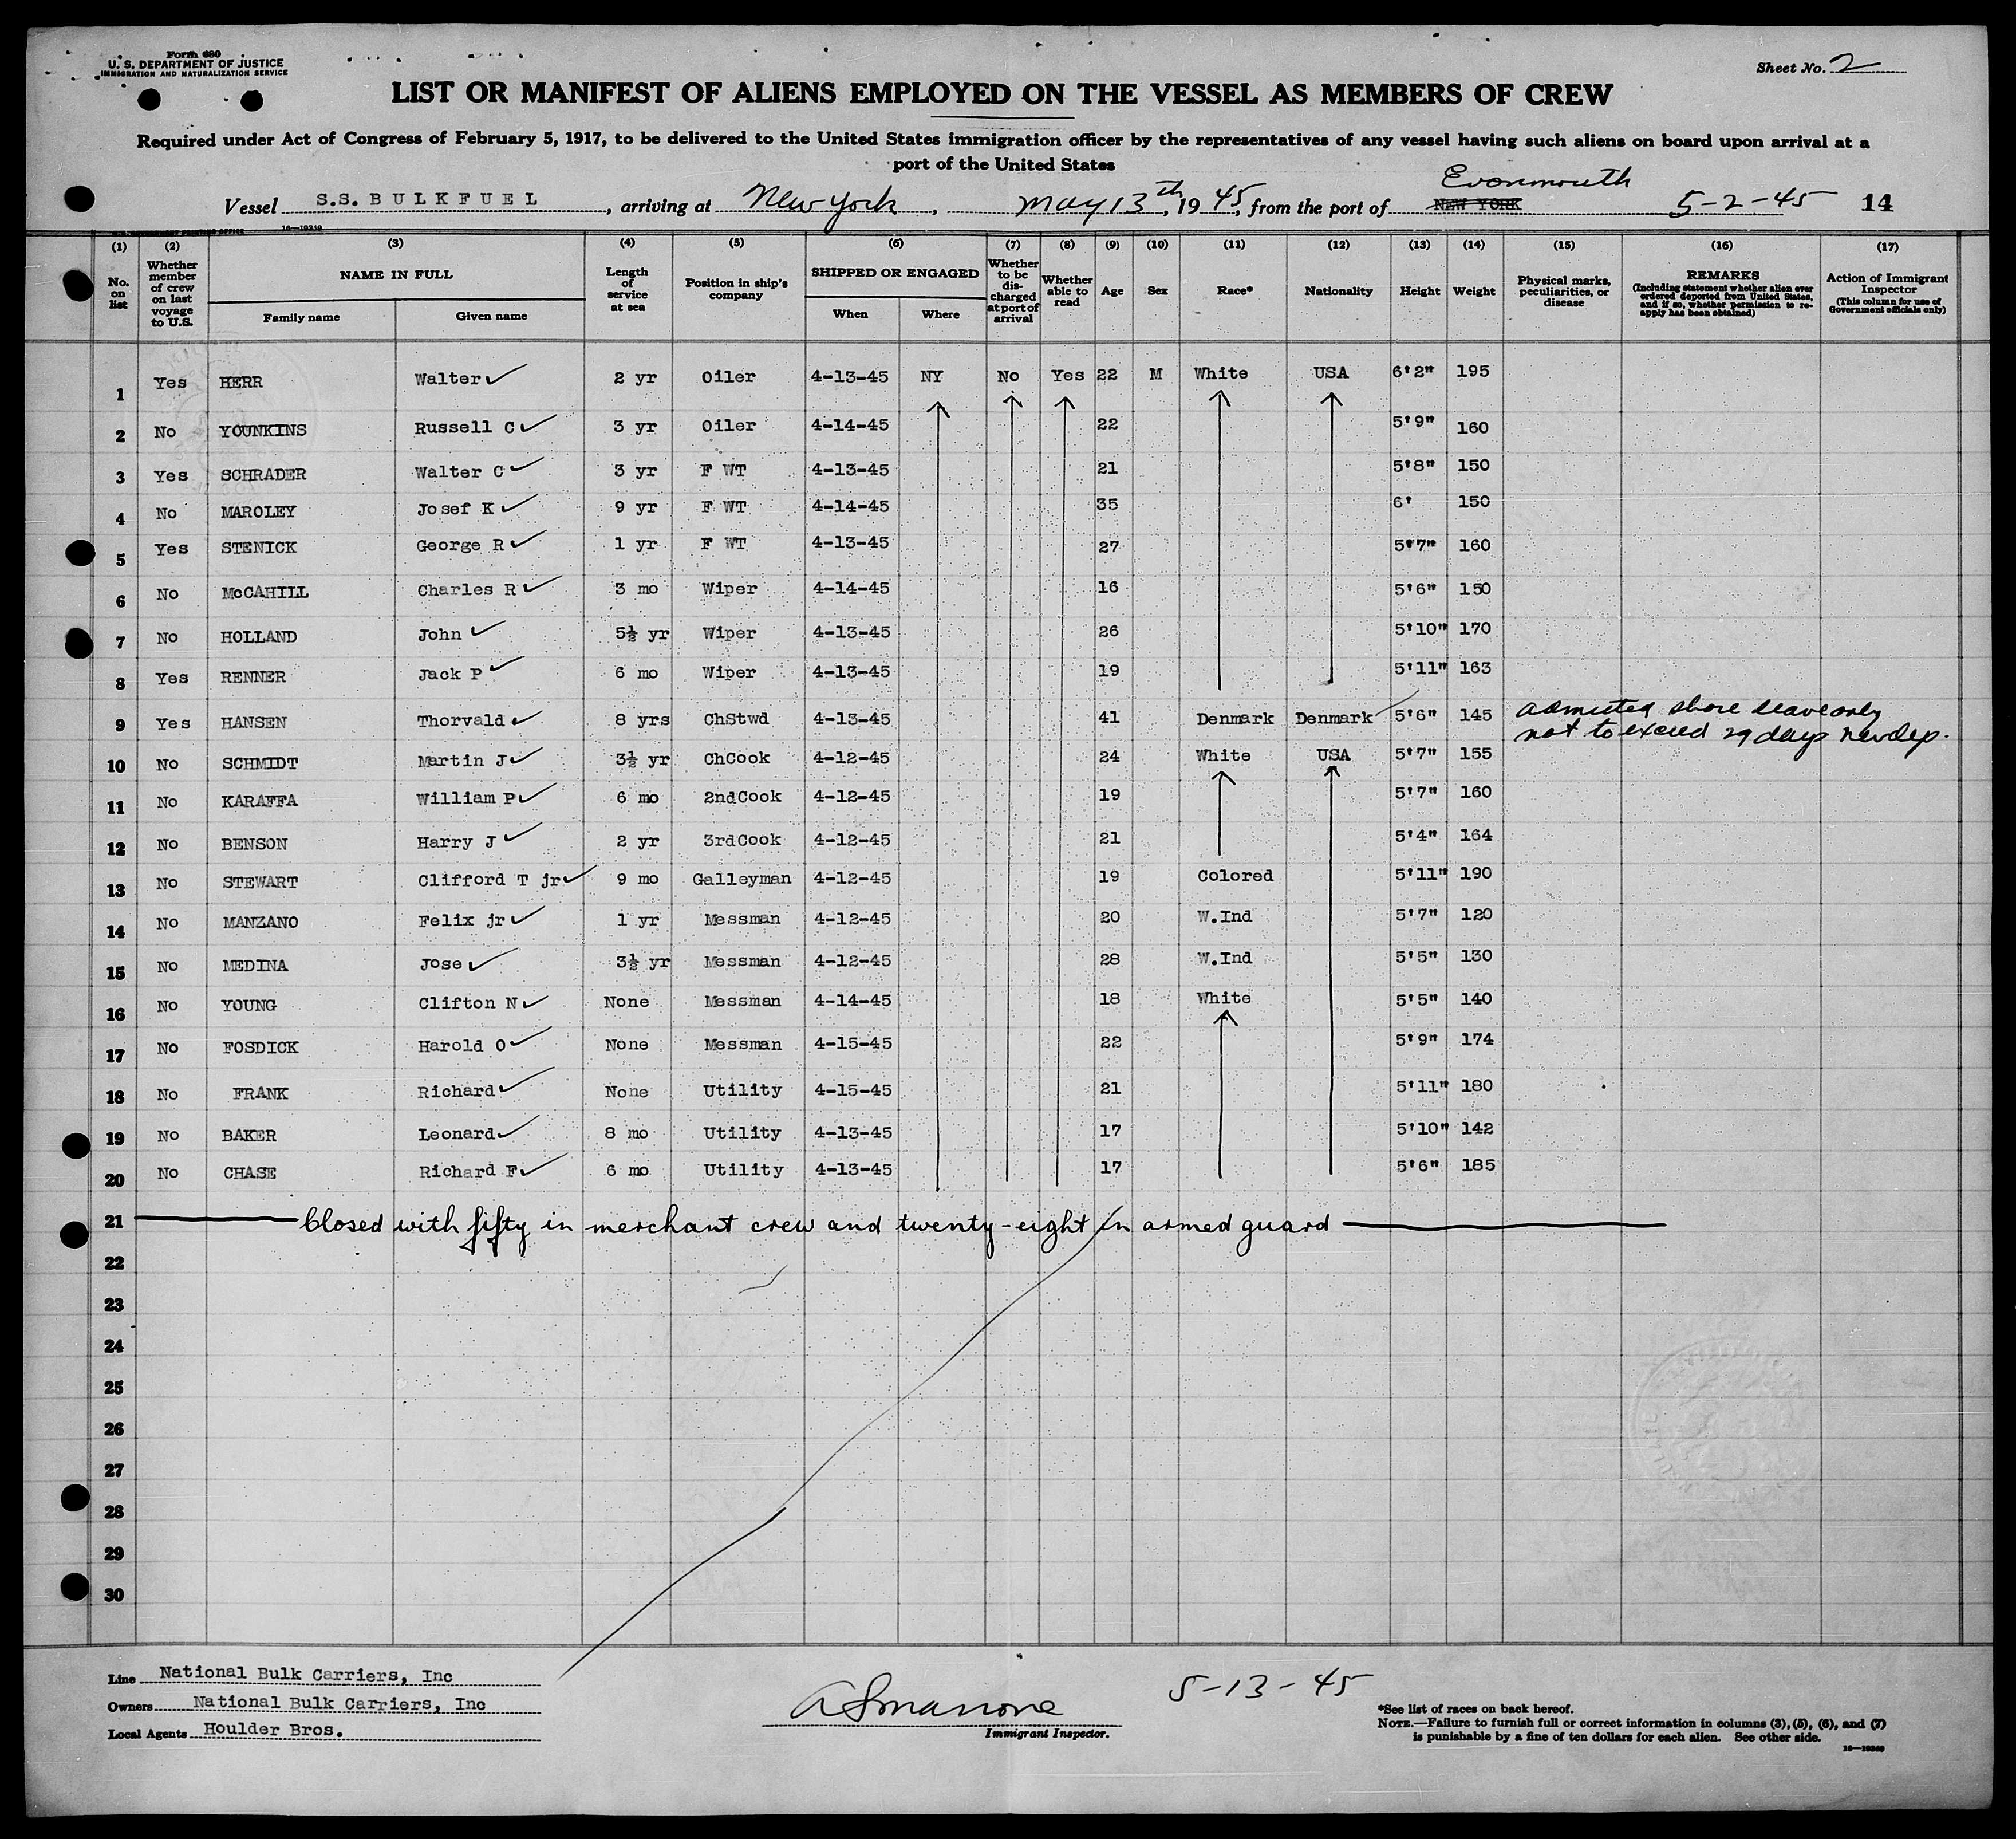 Form 680
U. S. DEPARTMENT OF JUSTICE
IMMIGRATION AND NATURALIZATION SERVICE
Sheet No. 2
LIST OR MANIFEST OF ALIENS EMPLOYED ON THE VESSEL AS MEMBERS OF CREW
Required under Act of Congress of February 5, 1917, to be delivered to the United States immigration officer by the representatives of any vessel having such aliens on board upon arrival at a
port of the United States
Evonmouth
Vessel S.S. BULKFUEL, arriving at New York, May 13th, 1945, from the port of NEW YORK 5-2-45 14
16—19349
(1) (2) (3) (4) (5) (6) (7) (8) (9) (10) (11) (12) (13) (14) (15) (16) (17)
No. on list Whether member of crew on last voyage to U.S. NAME IN FULL Family name Given name Length of service at sea Position in ship's company SHIPPED OR ENGAGED When Where Whether to be discharged at port of arrival Whether able to read Age Sex Race* Nationality Height Weight Physical marks, peculiarities, or disease REMARKS (Including statement whether alien ever ordered deported from United States, and if so, whether permission to re-apply has been obtained) Action of Immigrant Inspector (This column for use of Government officials only)
1 Yes HERR Walter 2 yr Oiler 4-13-45 NY No Yes 22 M White USA 6'2" 195
2 No YOUNKINS Russell C 3 yr Oiler 4-14-45 22 5'9" 160
3 Yes SCHRADER Walter C 3 yr F WT 4-13-45 21 5'8" 150
4 No MAROLEY Josef K 9 yr F WT 4-14-45 35 6' 150
5 Yes STENICK George R 1 yr F WT 4-13-45 27 5'7" 160
6 No McCAHILL Charles R 3 mo Wiper 4-14-45 16 5'6" 150
7 No HOLLAND John 5½ yr Wiper 4-13-45 26 5'10" 170
8 Yes RENNER Jack P 6 mo Wiper 4-13-45 19 5'11" 163
9 Yes HANSEN Thorvald 8 yrs ChStwd 4-13-45 41 Denmark Denmark 5'6" 145 admitted shore leave only
not to exceed 29 days
10 No SCHMIDT Martin J 3½ yr ChCook 4-12-45 24 White USA 5'7" 155
11 No KARAFFA William P 6 mo 2ndCook 4-12-45 19 5'7" 160
12 No BENSON Harry J 2 yr 3rdCook 4-12-45 21 5'4" 164
13 No STEWART Clifford T jr 9 mo Galleyman 4-12-45 19 Colored 5'11" 190
14 No MANZANO Felix jr 1 yr Messman 4-12-45 20 W.Ind 5'7" 120
15 No MEDINA Jose 3½ yr Messman 4-12-45 28 W.Ind 5'5" 130
16 No YOUNG Clifton N None Messman 4-14-45 18 White 5'5" 140
17 No FOSDICK Harold O None Messman 4-15-45 22 5'9" 174
18 No FRANK Richard None Utility 4-15-45 21 5'11" 180
19 No BAKER Leonard 8 mo Utility 4-13-45 17 5'10" 142
20 No CHASE Richard F 6 mo Utility 4-13-45 17 5'6" 185
21 Closed with fifty in merchant crew and twenty-eight in armed guard
22
23
24
25
26
27
28
29
30
Line National Bulk Carriers, Inc
Owners National Bulk Carriers, Inc
Local Agents Houlder Bros.
5-13-45
Immigrant Inspector.
*See list of races on back hereof.
NOTE.—Failure to furnish full or correct information in columns (3), (5), (6), and (7)
is punishable by a fine of ten dollars for each alien. See other side.
16—19349